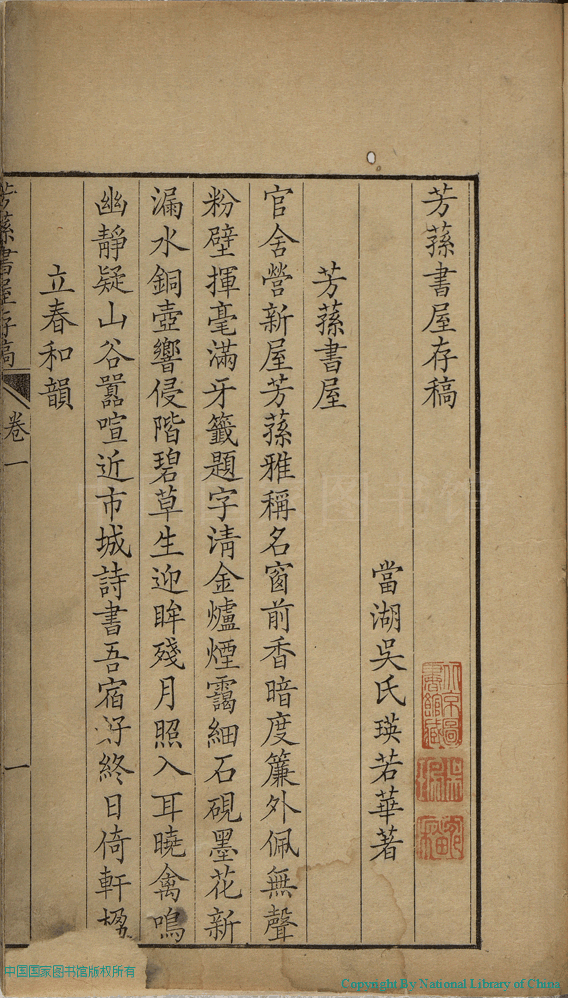 芳蓀書屋存稿
當湖吳氏瑛若華著
芳蓀書屋
官舍營新屋芳蓀雅稱名窗前香暗度簾外佩無聲
粉壁揮毫滿牙籤題字清金爐煙靄細石硯墨花新
漏水銅壺響侵階碧草生迎眸殘月照入耳曉禽鳴
幽靜疑山谷囂喧近市城詩書吾宿好終日倚軒楹
立春和韻
芳蓀書屋存稿
卷一
一
北京圖書館藏
中国国家图书馆
中国国家图书馆版权所有
Copyright By National Library of China